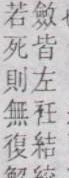 斂皆左衽結絞
若死則無復解